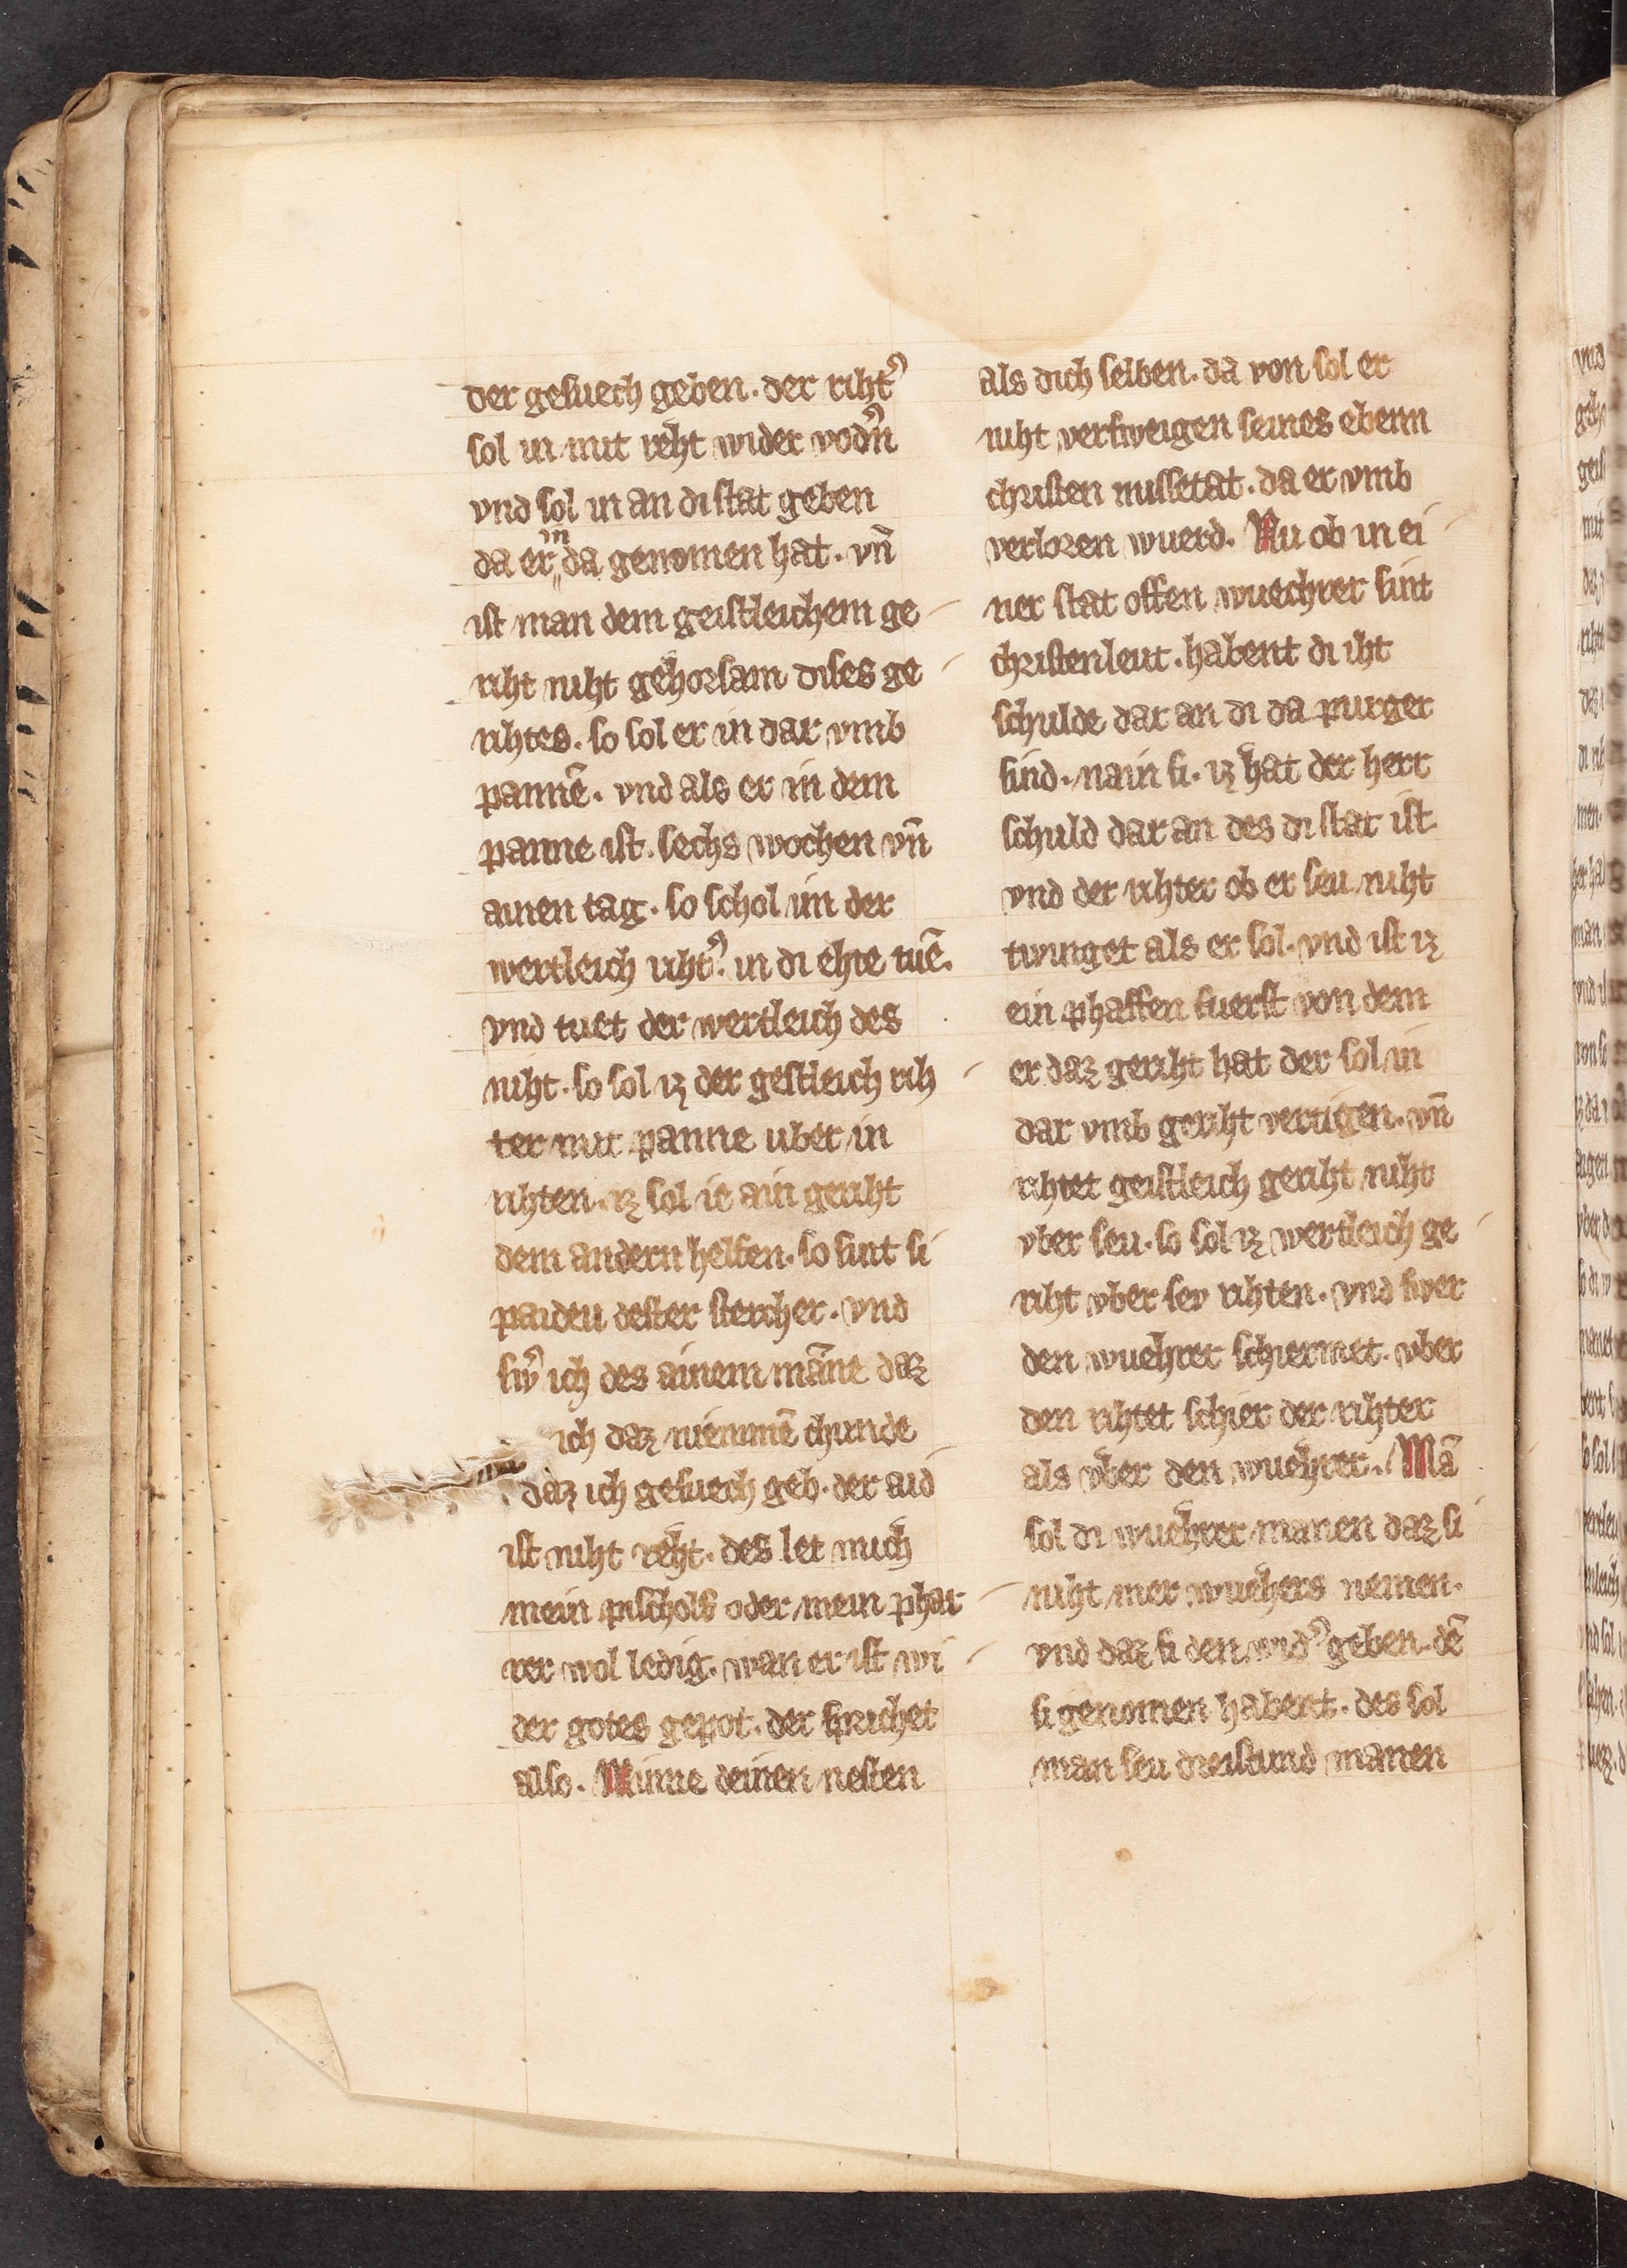 der gesuech geben. der riht᾽
sol in mit reht wider vod᾽n
vnd sol in an di stat geben
da er in da genomen hat. vn̄
ist man dem geistleichem ge
riht niht gehorsam dises ge
rihtes. so sol er in dar vmb
pannē. vnd als er in dem
panne ist. sechs wochen vn̄
ainen tag. so schol im der
wertleich riht᾽. in di ehte tuē.
vnd tuet der wertleich des
niht. so sol iz der gestleich rih
ter mit panne uber in
rihten. iz sol ie ain geriht
dem andern helfen. so sint si
paideu dester stercher. vnd
sw᾽ ich des ainem māne daz
ich daz niemmē chunde
daz ich gesuech geb. der aid
ist niht reht. des let mich
mein pischolf oder mein phar
rer wol ledig. wan er ist wi
der gotes gepot. der sprichet
also. Minne deinen nesten
als dich selben. da von sol er
niht versweigen seines ebenn
christen missetat. da er vmb
verloren wuerd. Nu ob in ei
ner stat offen wuechrer sint
christenleut. habent di iht
schulde dar an di da purger
sind. nain si. iz hat der herr
schuld dar an des di stat ist
vnd der rihter ob er seu niht
twinget als er sol. vnd ist iz
ein phaffen fuerst von dem
er daz geriht hat der sol in
dar vmb geriht vertigen. vn̄
rihtet geistleich geriht niht
vber seu. so sol iz wertleich ge
riht vber sev rihten. vnd swer
den wuehrer schiermet. vber
den rihtet schier der rihter
als vber den wuehrer. Mā
sol di wuehrer manen daz si
niht mer wuehers nemen.
vnd daz si den wid᾽ geben. dē
si genomen habent. des sol
man seu dreistund manen